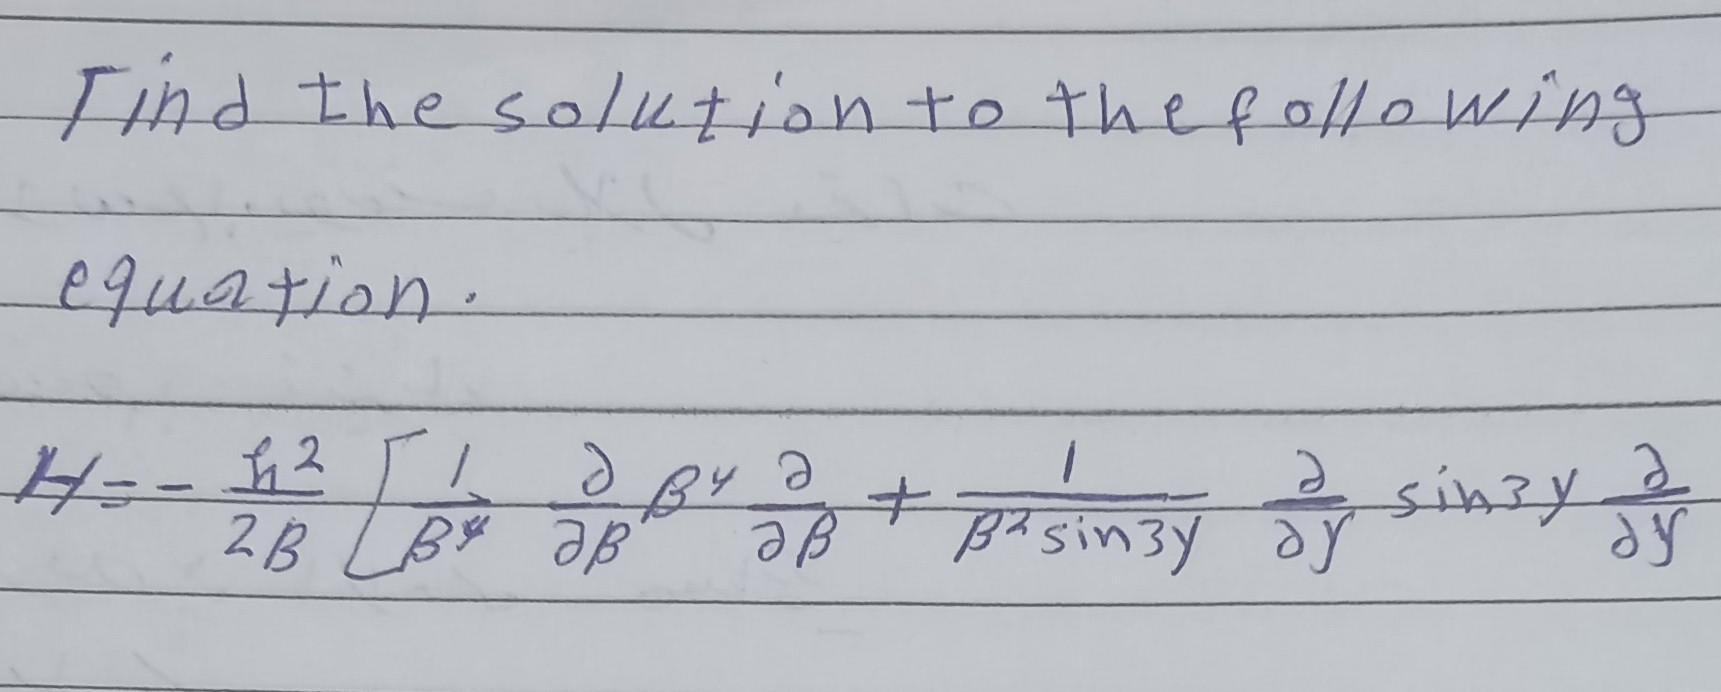 Find the solution to the following
equation.
H = - ħ²/2B [ 1/β⁴ ∂/∂β β⁴ ∂/∂β + 1/β² sin3γ ∂/∂γ sin3γ ∂/∂γ